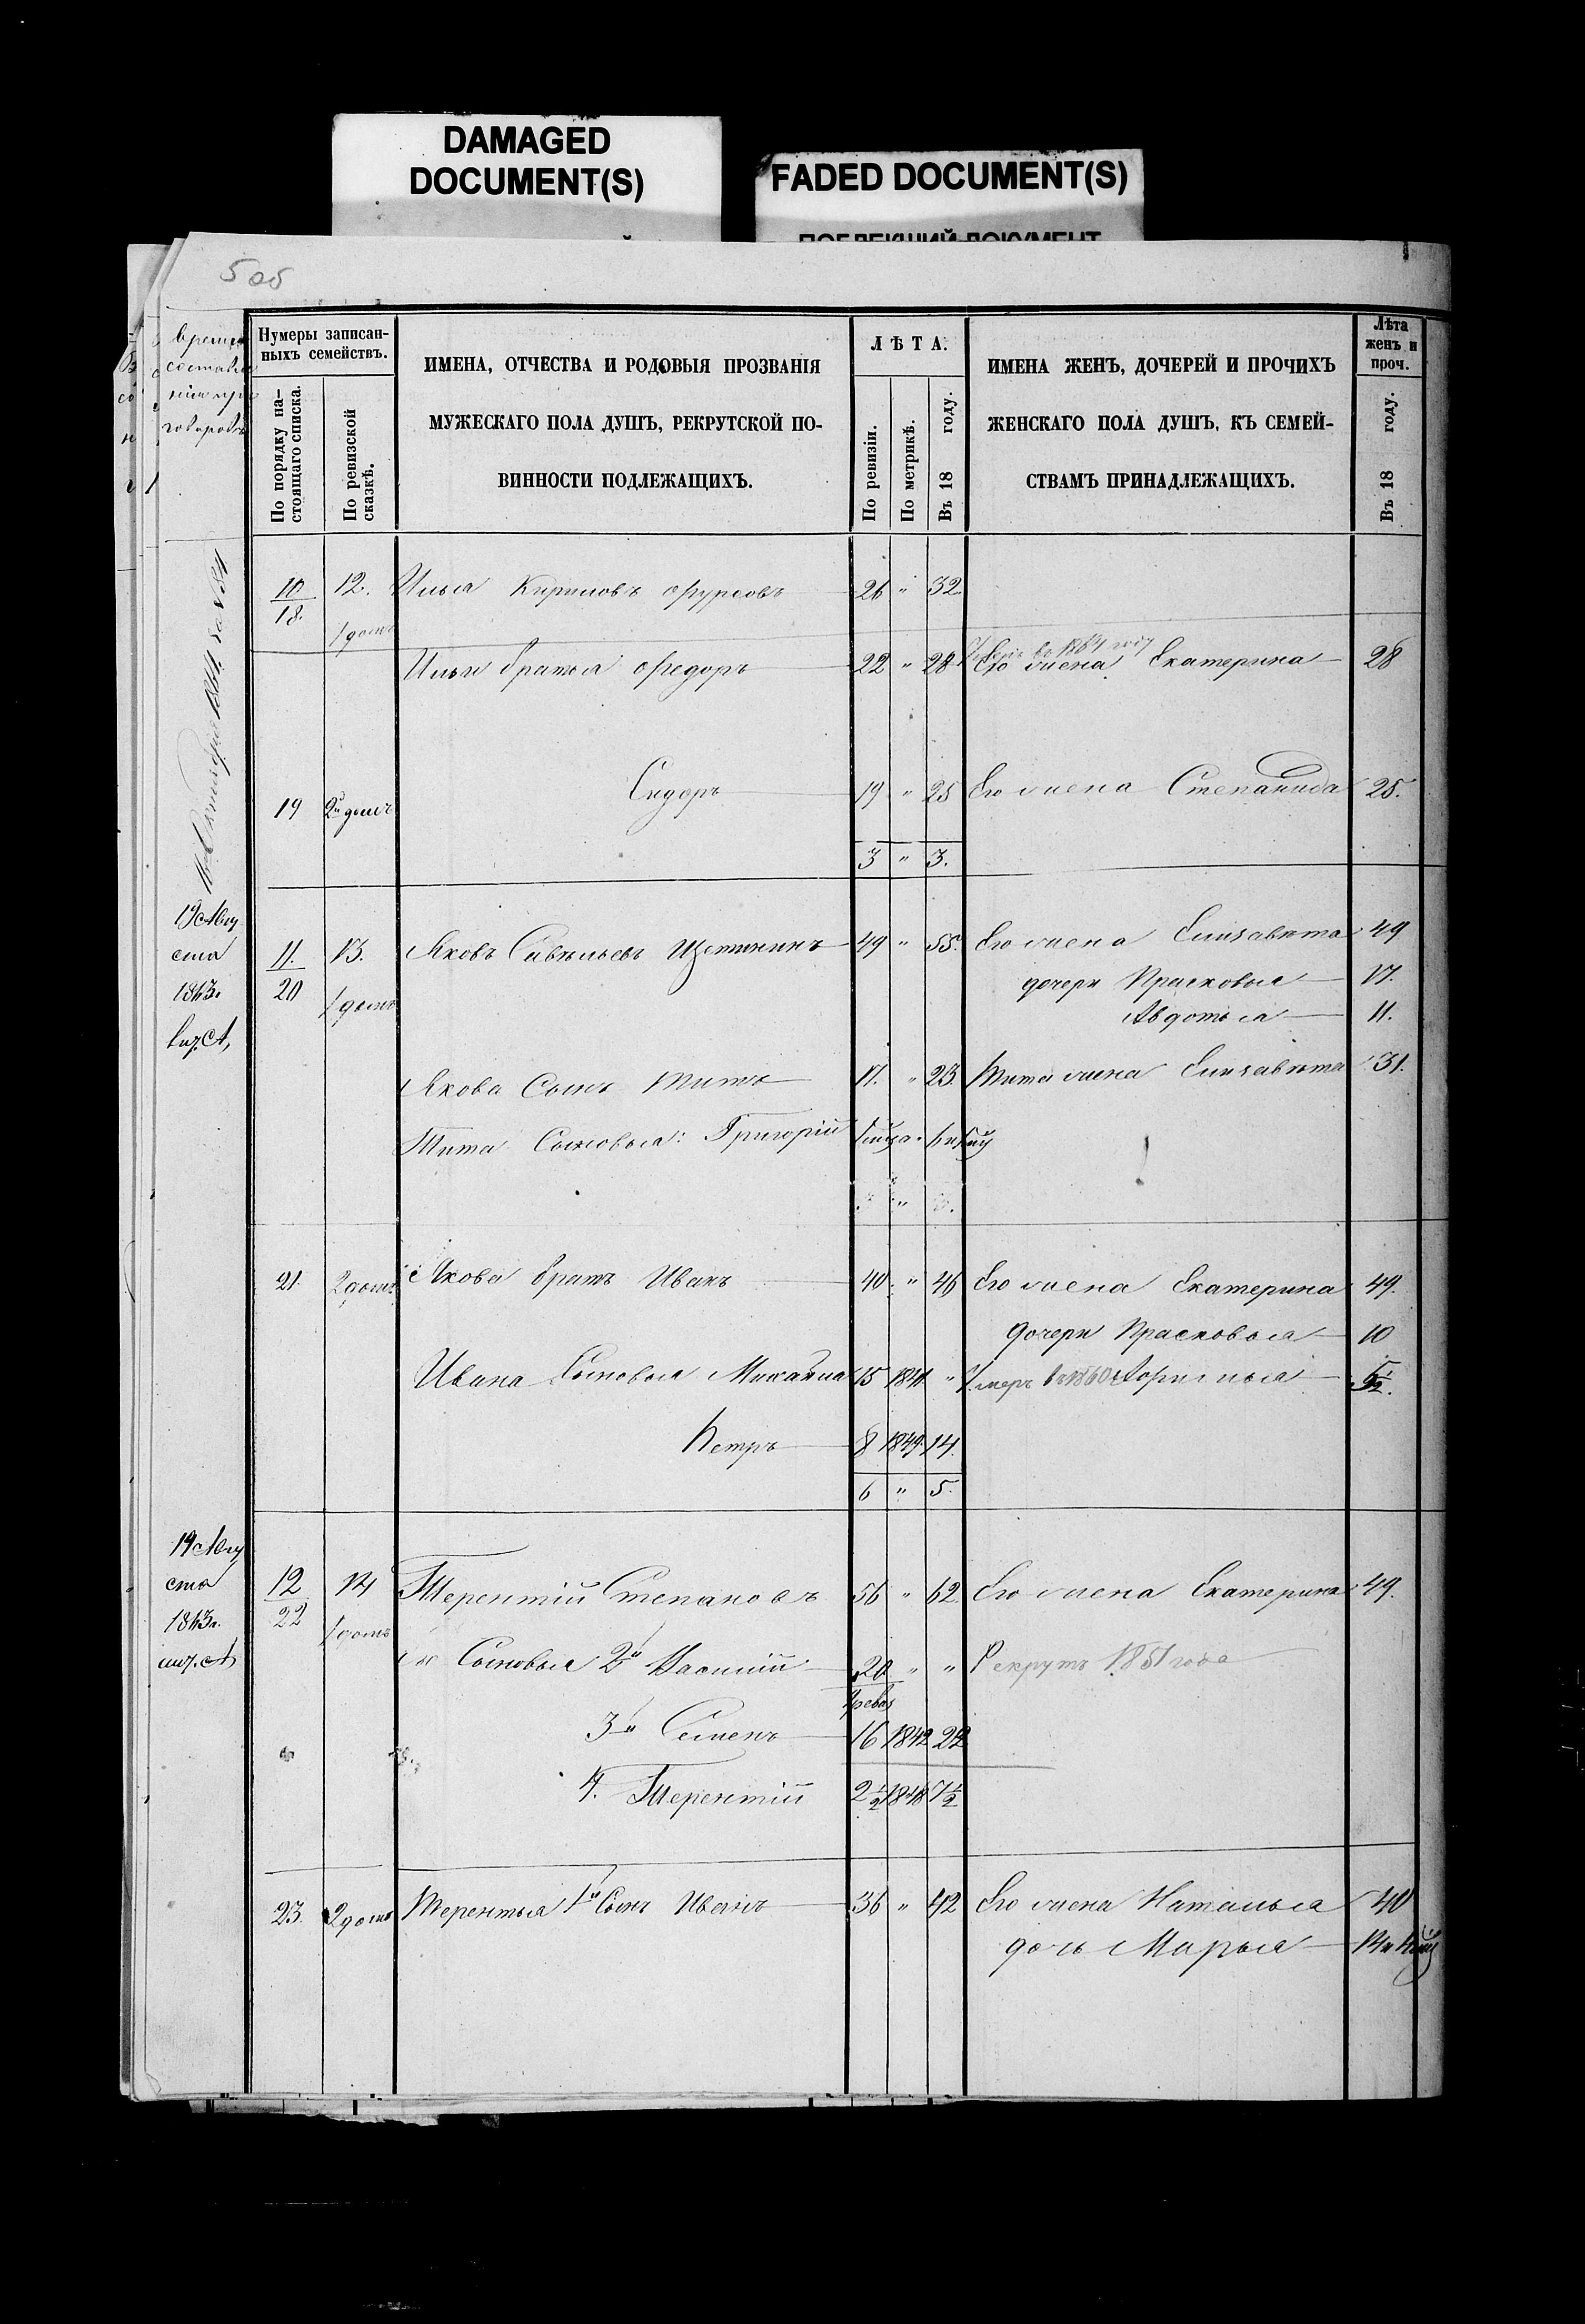 DAMAGED
DOCUMENT(S)
FADED DOCUMENT(S)
ПОБЛЕКШИЙ ДОКУМЕНТ
5 об
Нумеры записан-
ныхъ семействъ.
По порядку на-
стоящаго списка.
По ревизской
сказкѣ.
ИМЕНА, ОТЧЕСТВА И РОДОВЫЯ ПРОЗВАНІЯ
МУЖЕСКАГО ПОЛА ДУШЪ, РЕКРУТСКОЙ ПО-
ВИННОСТИ ПОДЛЕЖАЩИХЪ.
ЛѢТА.
По ревизіи.
По метрикѣ.
Въ 18 году.
ИМЕНА ЖЕНЪ, ДОЧЕРЕЙ И ПРОЧИХЪ
ЖЕНСКАГО ПОЛА ДУШЪ, КЪ СЕМЕЙ-
СТВАМЪ ПРИНАДЛЕЖАЩИХЪ.
Лѣта
женъ и
проч.
Въ 18 году.
10 12. Илья Кириловъ 26 " 32
18. 1 домъ
Ильи братья Федоръ 22 " 28 Его жена Екатерина 28
въ 1864 году
19 2й домъ Сидоръ 19 " 25 Его жена Степанида 25.
3 " 3.
19 Авгу
ста
1863.
11. 13. Яковъ Савельевъ Щетининъ 49 " 55. Его жена Елизавѣта 49
20 1 домъ дочери Прасковья 17.
Авдотья 11.
Якова Сынъ Титъ 17. " 23. Тита жена Елизавѣта 31.
Тита Сыновья: Григорій
21. 2 домъ Якова братъ Иванъ 40 " 46 Его жена Екатерина 49.
дочери Прасковья 10
Ивана Сыновья Михайла 15 1841 " Умеръ въ 1860 5 1/2.
Петръ 8 1849 14.
6 " 5.
19 Авгу
ста
1863.
12 14 Терентій Степановъ 56 " 62 Его жена Екатерина 49.
22 1 домъ
Сыновья 2й Василій 20 " " Рекрутъ 1851 года
3й Семенъ 16 1842 22
4. Терентій 2 1/2 1848 7 1/2
23. 2 домъ Терентья 1й Сынъ Иванъ 36 " 42 Его жена Наталья 40
дочь Марья